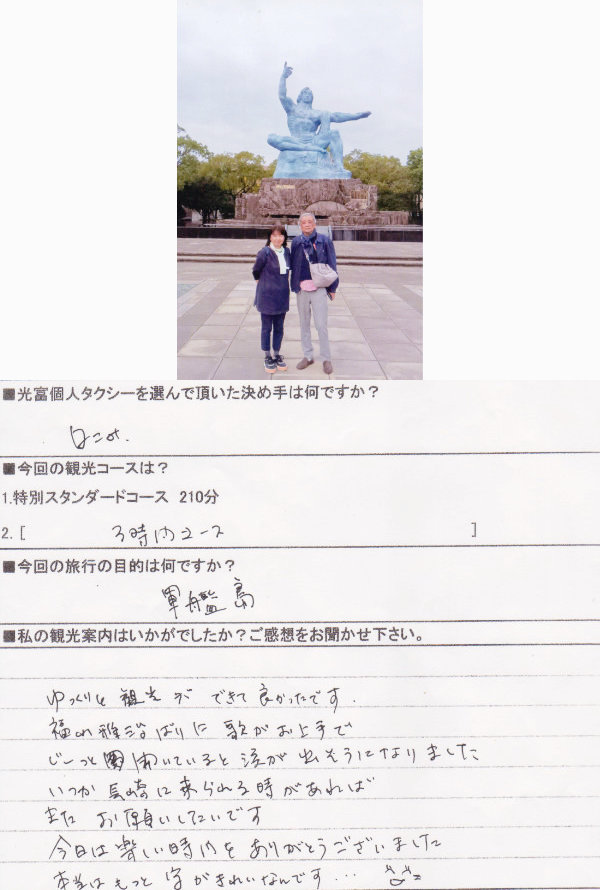 ■光富個人タクシーを選んで頂いた決め手は何ですか？
口コミ.
■今回の観光コースは？
1.特別スタンダードコース 210分
2.[ 3時間コース ]
■今回の旅行の目的は何ですか？
軍艦島
■私の観光案内はいかがでしたか？ご感想をお聞かせ下さい。
ゆっくりと 観光が できて 良かったです.
福山雅治ばりに 歌がお上手で
じーっと 聞いていると 涙が 出そうになりました
いつか 長崎に 来られる時があれば
また お願いしたいです
今日は 楽しい時間を ありがとうございました
本当は もっと 字がきれいなんです…